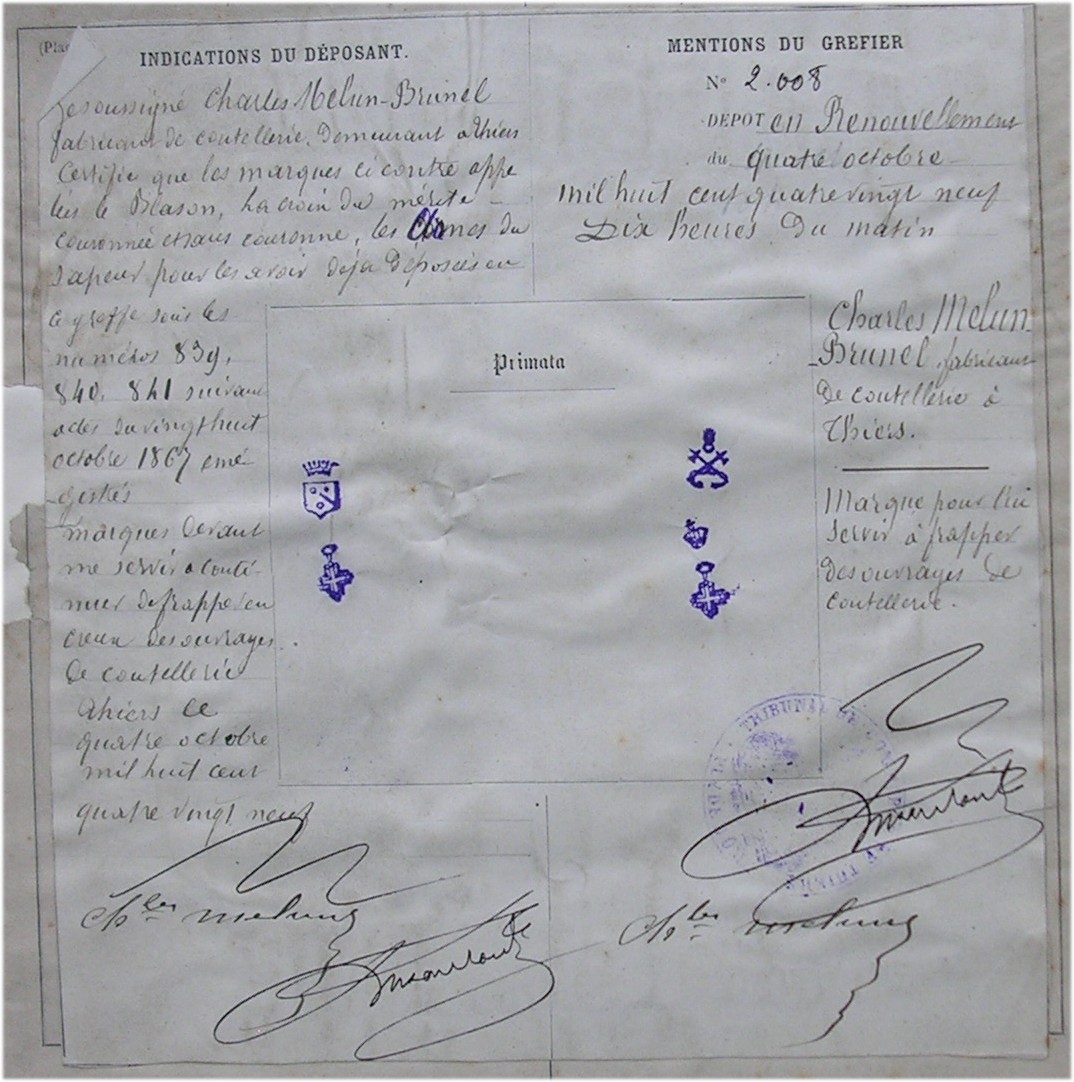 (Pla
INDICATIONS DU DÉPOSANT.
Je soussigné Charles Melun-Brunel
fabricant de coutellerie, demeurant à Thiers
Certifie que les marques ci contre appe
lées le Blason, La croix du mérite
couronnée et sans couronne, les Armes du
Sapeur pour les avoir déjà déposées au
le greffe sous les
numéros 839,
840, 841 suivant
actes du vingt huit
octobre 1867
marques devant
me servir à conti-
nuer de frapper en
creux des ouvrages
de coutellerie
Thiers le
quatre octobre
mil huit cent
quatre vingt neuf
Ch les Melun
MENTIONS DU GREFIER
N° 2.008
DÉPOT en Renouvellement
du quatre octobre
mil huit cent quatre vingt neuf
Dix heures du matin
Primata
Charles Melun-
Brunel, fabricant
de coutellerie à
Thiers.
Marque pour lui
servir à frapper
des ouvrages de
coutellerie.
TRIBUNAL DE
THIERS
Ch les Melun